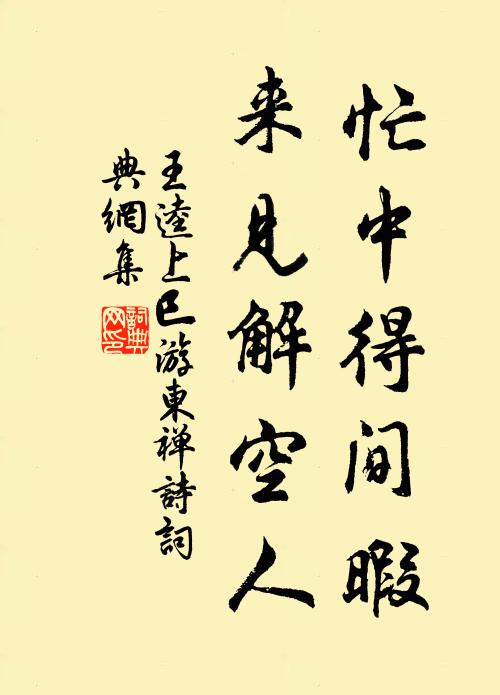 忙中得间暇
来見解空人
王逵上巳游東禅詩詞
典網集
詞典
网印